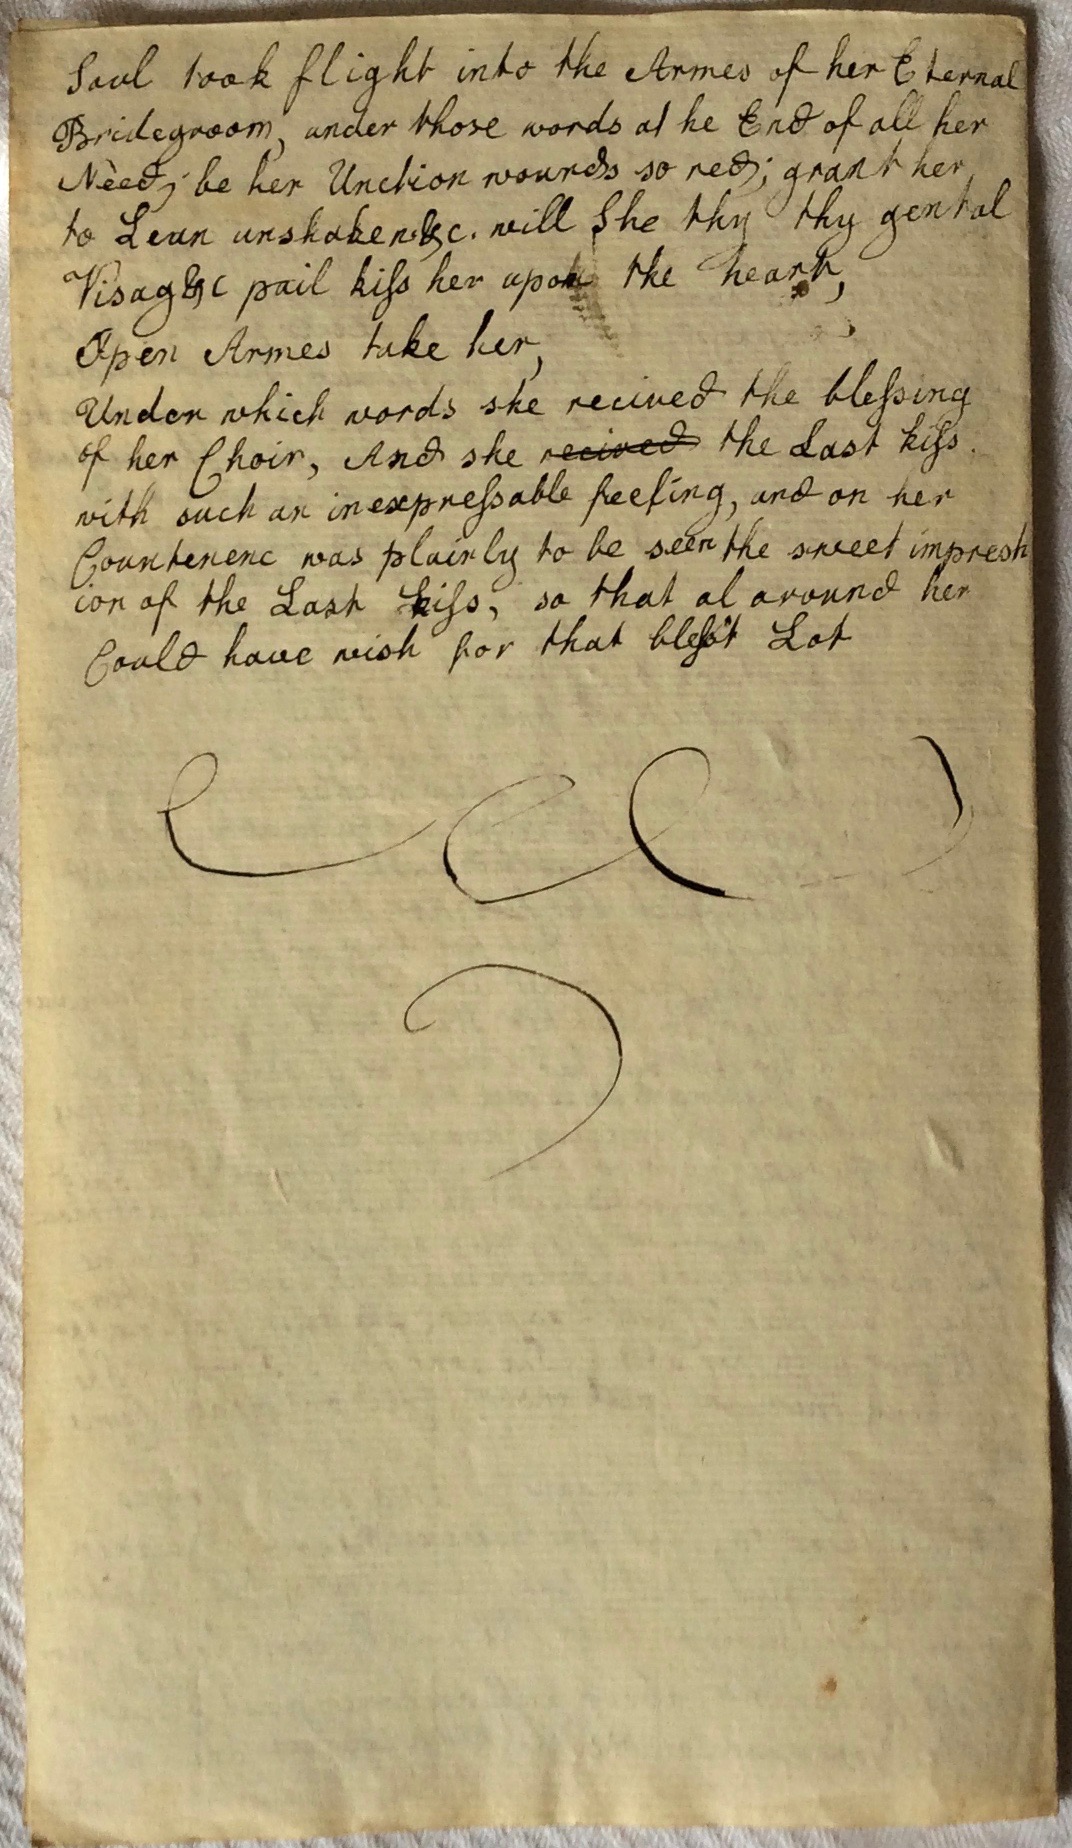 Soul took flight into the Armes of her Eternal
Bridegroom, under those words at he End of all her
Need; be her Unction wounds so red; grant her
to Lean unshaken &c. will She thy thy gental
Visag &c pail kiſs her upon the heart,
Open Armes take her,
Under which words she recived the bleſsing
of her Choir, And she recived the Last kiſs.
with such an inexpreſsable feeling, and on her
Countenenc was plainly to be seen the sweet impresh
ion of the Last kiſs, so that al around her
Could have wish for that bleſst Lot